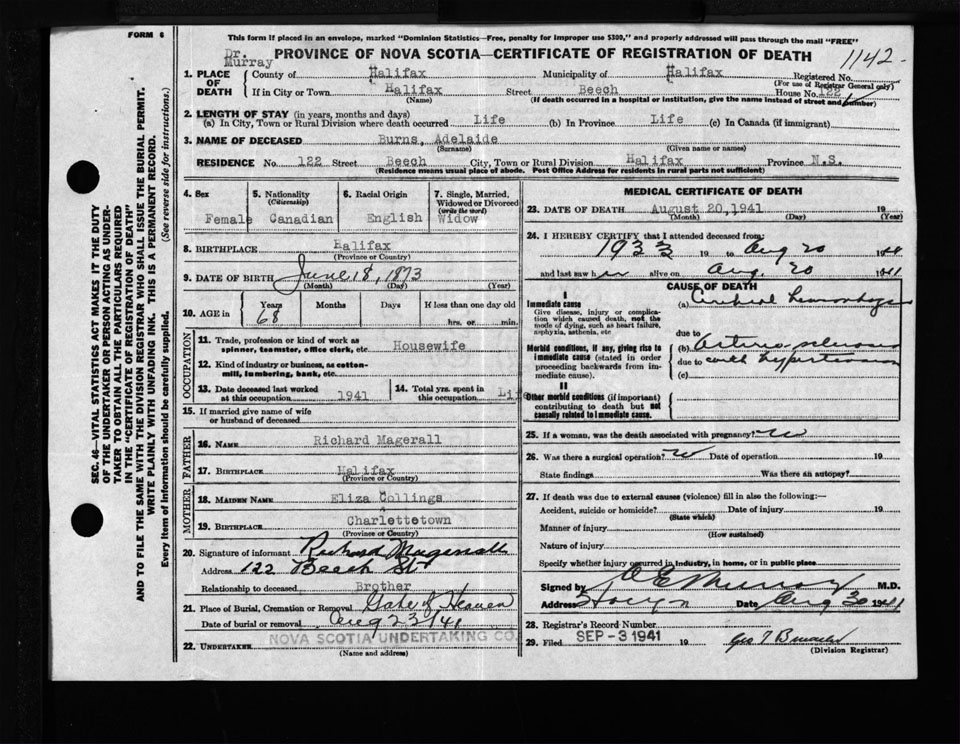 FORM 6
This form if placed in an envelope, marked "Dominion Statistics—Free, penalty for improper use $300," and properly addressed will pass through the mail "FREE"
Dr. Murray
PROVINCE OF NOVA SCOTIA—CERTIFICATE OF REGISTRATION OF DEATH
1142
1. PLACE OF DEATH
County of Halifax Municipality of Halifax Registered No.
(For use of Registrar General only)
If in City or Town Halifax Street Beech House No. 122
(Name) (If death occurred in a hospital or institution, give the name instead of street and number)
2. LENGTH OF STAY (in years, months and days)
(a) In City, Town or Rural Division where death occurred Life (b) In Province Life (c) In Canada (if immigrant)
3. NAME OF DECEASED Burns, Adelaide
(Surname) (Given name or names)
RESIDENCE No. 122 Street Beech City, Town or Rural Division Halifax Province N.S.
(Residence means usual place of abode. Post Office Address for residents in rural parts not sufficient)
4. Sex Female
5. Nationality (Citizenship) Canadian
6. Racial Origin English
7. Single, Married, Widowed or Divorced (write the word) Widow
8. BIRTHPLACE Halifax
(Province or Country)
9. DATE OF BIRTH June 18, 1873
(Month) (Day) (Year)
10. AGE Years 68 Months Days If less than one day old
hrs. or min.
OCCUPATION
11. Trade, profession or kind of work as spinner, teamster, office clerk, etc. Housewife
12. Kind of industry or business, as cotton-mill, lumbering, bank, etc.
13. Date deceased last worked at this occupation 1941
14. Total yrs. spent in this occupation Lif
15. If married give name of wife or husband of deceased
FATHER
16. NAME Richard Magerall
17. BIRTHPLACE Halifax
(Province or Country)
MOTHER
18. MAIDEN NAME Eliza Collings
19. BIRTHPLACE Charlettetown
(Province or Country)
20. Signature of informant Richard Magerall
Address 122 Beech St
Relationship to deceased Brother
21. Place of Burial, Cremation or Removal Gate of Heaven
Date of burial or removal Aug 23/41
22. UNDERTAKER NOVA SCOTIA UNDERTAKING CO.
(Name and address)
MEDICAL CERTIFICATE OF DEATH
23. DATE OF DEATH August 20,1941 19
(Month) (Day) (Year)
24. I HEREBY CERTIFY that I attended deceased from:
1933 19 to Aug 20 1941
and last saw her alive on Aug. 20 1941
CAUSE OF DEATH
I
Immediate cause
Give disease, injury or complication which caused death, not the mode of dying, such as heart failure, asphyxia, asthenia, etc
(a) Cerebral hemorrhage
due to
Morbid conditions, if any, giving rise to immediate cause (stated in order proceeding backwards from immediate cause).
(b) Arterio sclerosis
due to with hypertension
(c)
II
Other morbid conditions (if important) contributing to death but not causally related to immediate cause.
25. If a woman, was the death associated with pregnancy?
26. Was there a surgical operation? Date of operation 19
State findings Was there an autopsy?
27. If death was due to external causes (violence) fill in also the following:—
Accident, suicide or homicide? Date of injury 19
(State which)
Manner of injury
(How sustained)
Nature of injury
Specify whether injury occurred in industry, in home, or in public place
Signed by Murray M.D.
Address Date Aug 30 1941
28. Registrar's Record Number
29. Filed SEP -3 1941 19
(Division Registrar)
SEC. 46—VITAL STATISTICS ACT MAKES IT THE DUTY
OF THE UNDERTAKER OR PERSON ACTING AS UNDER-
TAKER TO OBTAIN ALL THE PARTICULARS REQUIRED
IN THE "CERTIFICATE OF REGISTRATION OF DEATH"
AND TO FILE THE SAME WITH THE DIVISION REGISTRAR WHO SHALL ISSUE THE BURIAL PERMIT.
WRITE PLAINLY WITH UNFADING INK. THIS IS A PERMANENT RECORD.
Every item of Information should be carefully supplied. (See reverse side for instructions.)